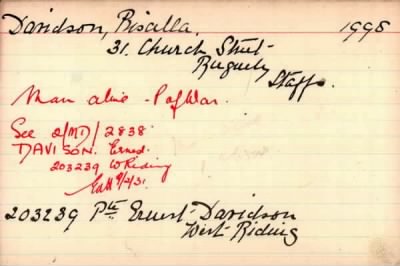 Davidson, Bisalla. 1998
31. Church Street
Rugeley
Staffs.
Man alive - P of War.
See 2/MD/2838
DAVISON. Ernest.
203239 W Riding
9/2/31.
203239 Pte Ernest Davidson
West Riding